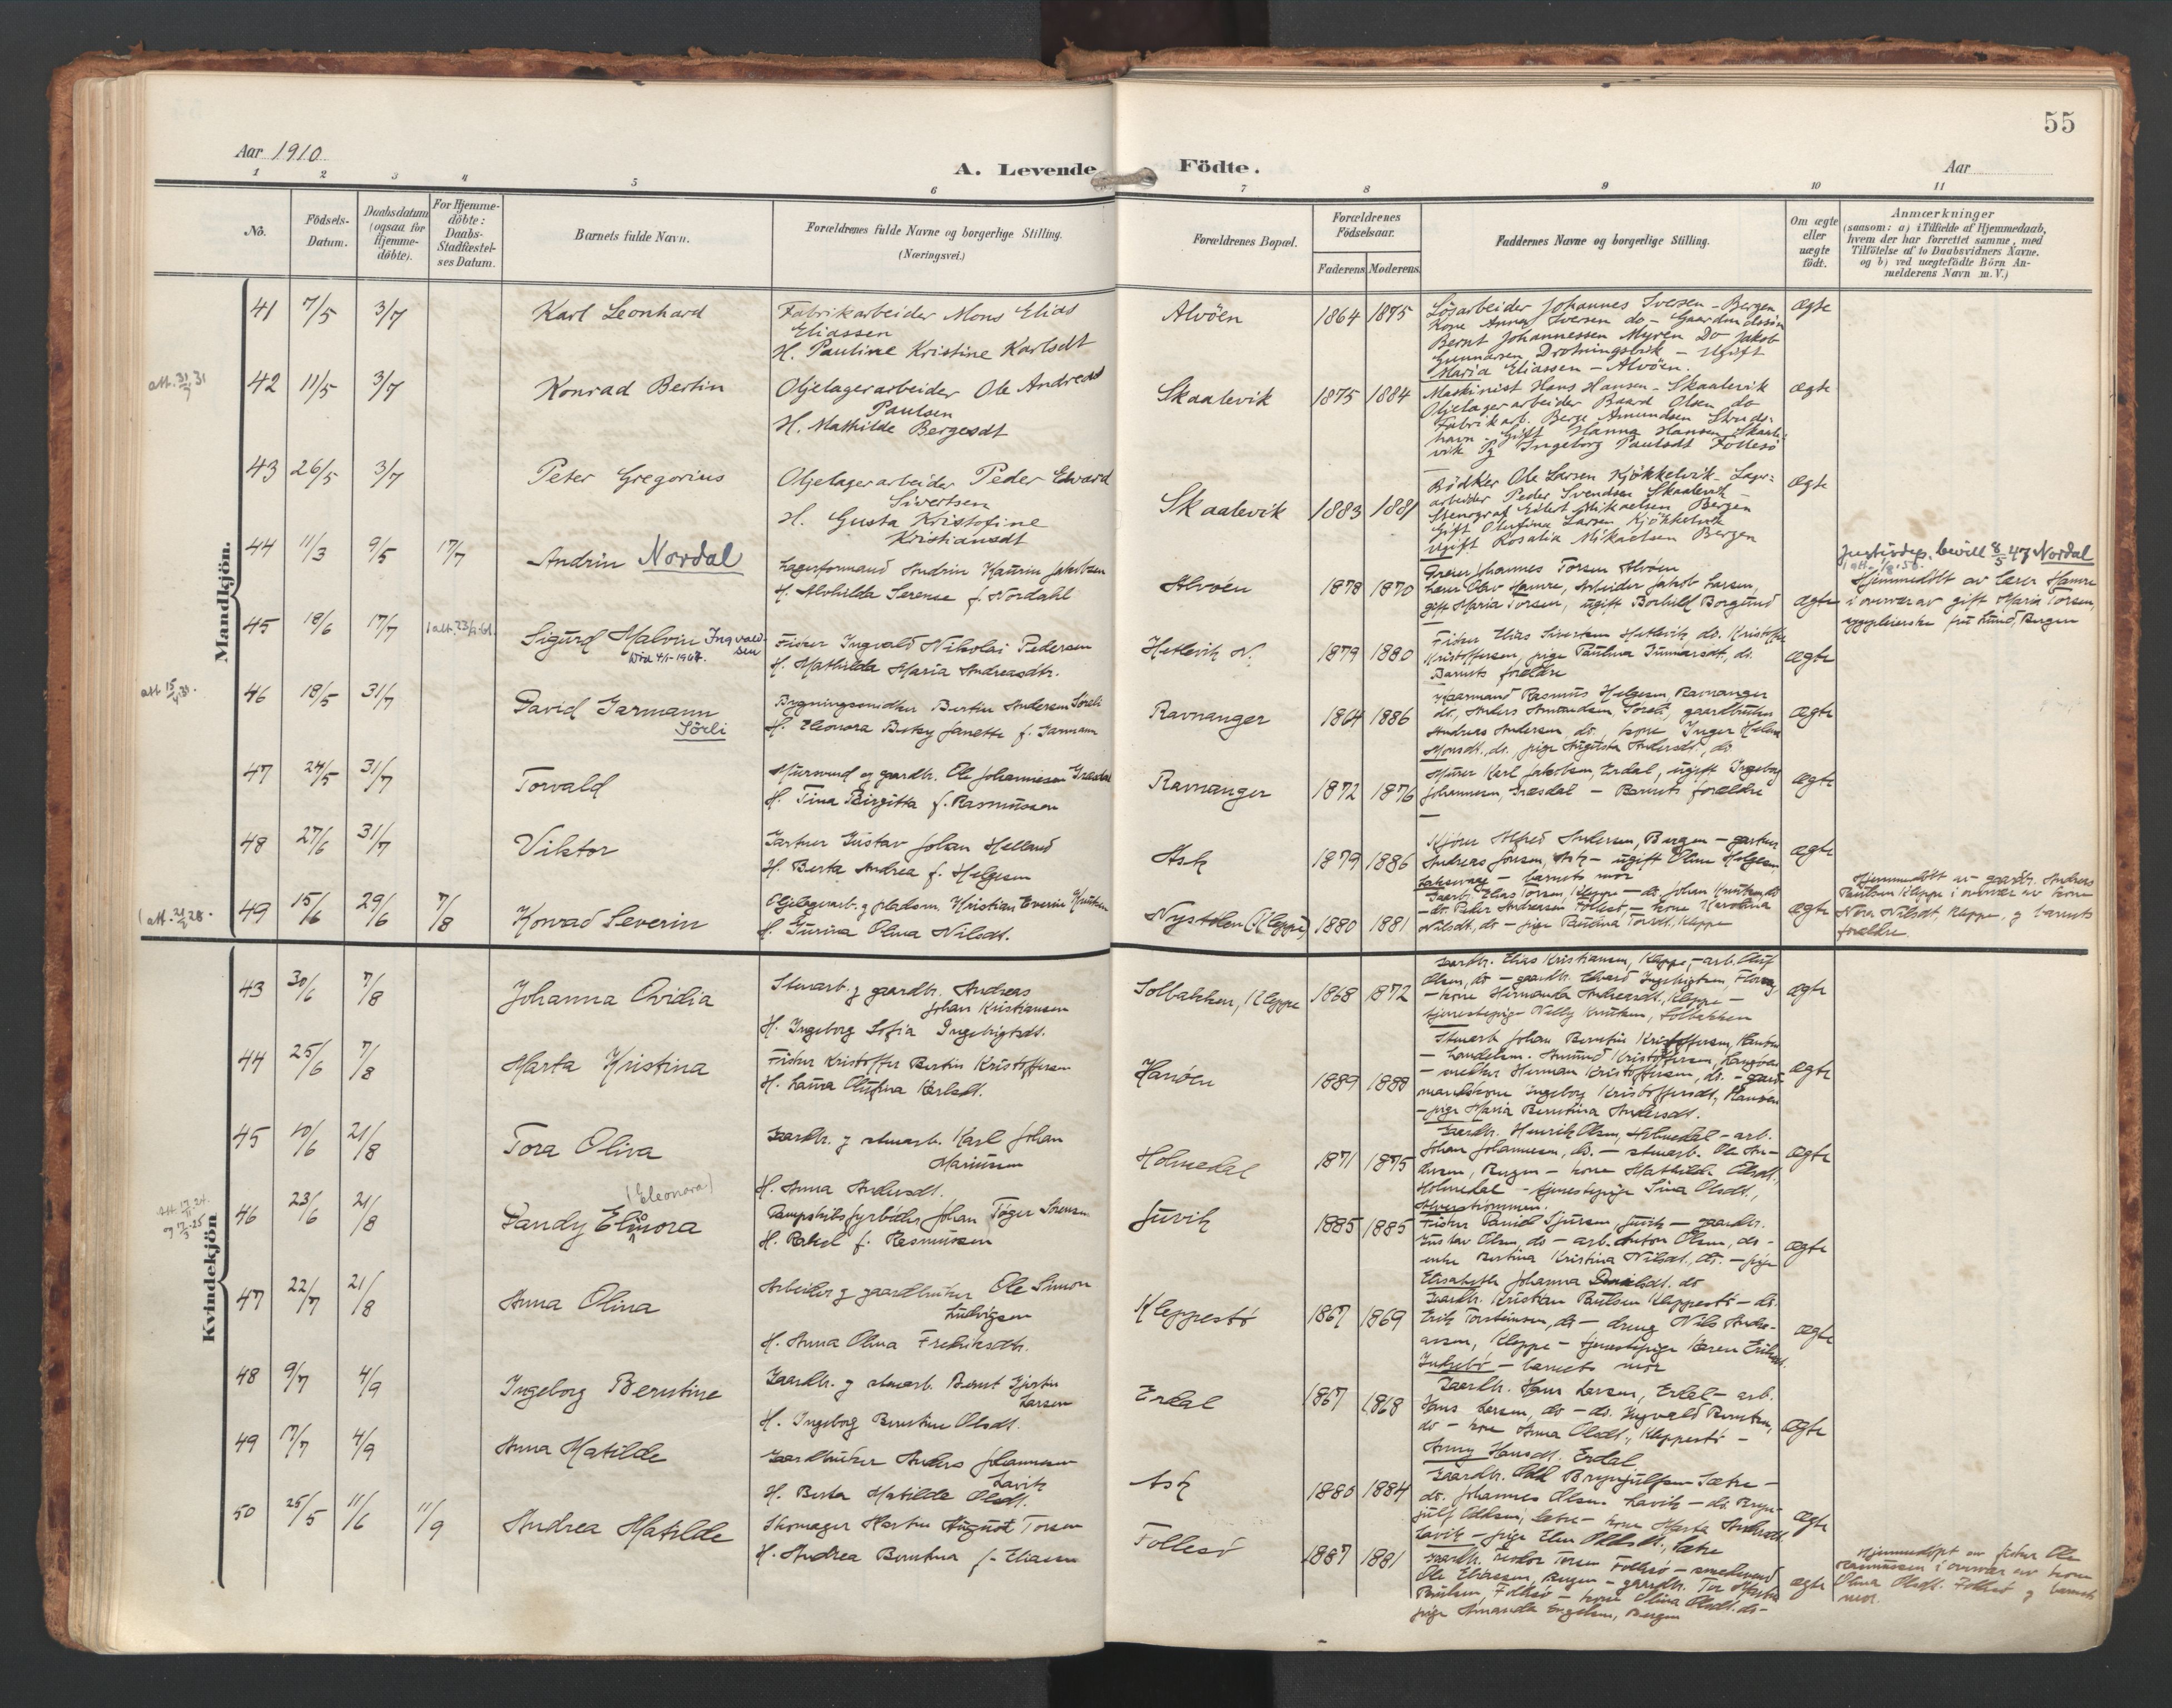 55
Aar 1910
A. Levende Födte.
Aar
1 2 3 4 5 6 7 8 9 10 11
No.
Födsels-Datum.
Daabsdatum (ogsaa for Hjemme-döbte).
For Hjemme-döbte: Daabs-Stadfæstel-ses Datum.
Barnets fulde Navn.
Forældrenes fulde Navne og borgerlige Stilling. (Næringsvei.)
Forældrenes Bopæl.
Forældrenes Födselsaar.
Faderens Moderens
Faddernes Navne og borgerlige Stilling.
Om ægte eller uægte födt.
Anmærkninger
(saasom: a) i Tilfælde af Hjemmedaab, hvem der har forrettet samme, med Tilföielse af to Daabsvidners Navne. og b) ved uægtefödte Börn An-melderens Navn m. V.)
Mandkjön.
41 7/5 3/7 Karl Leonhard
Fabrikarbeider Mons Elias
Eliassen
H. Pauline Kristine Karlsdt
Alvöen 1864 1875
Lösarbeider Johannes Iversen - Bergen
Kone Anna Iversen do - Gaardmandssön
Bernt Johannessen Myren Do Jakob
Gunnarsen Drotningsvik - Ugift
Maria Eliassen - Alvöen.
Ægte
42 11/5 3/7 Konrad Bertin
Oljelagerarbeider Ole Andreas
Paulsen
H. Mathilde Bergesdt
Skaalevik 1875 1884
Maskinist Hans Hansen - Skaalevik
Oljelagerarbeider Baard Olsen do
Fabrikarb. Berge Amundsen
havn - Gift Hanna Hansen Skaale-
vik Ingeborg Paulsdt Follesö
Ægte
43 26/5 3/7 Peter Gregorius
Oljelagerarbeider Peder Edvard
Sivertsen
H. Gusta Kristofine
Kristiansdt
Skaalevik 1883 1881
Bödker Ole Larsen Kjökkelvik - Lager-
arbeider Peder Svendsen Skaalevik -
Stenograf Eilert Mikaelsen Bergen
Gift Olufina Larsen Kjökkelvik
Ugift Rosalia Mikaelsen Bergen
Ægte
44 11/3 9/5 17/7 Andrin Nordal
Lagerformand Andrin Kaurin Jakobsen
H. Alvhilda Serense f. Nordahl
Alvöen 1878 1870
Johannes Torsen Alvöen
Lærer Olav Hamre, Arbeider Jakob Larsen,
gift Maria Torsen, ugift Borhild Borgund
Ægte
Justisdep. bevill 8/5 47 Nordal
Hjemmedöbt av lærer Hamre
i overvær av gift Maria Torsen,
sygepleierske fru Lund, Bergen
45 18/6 17/7 Sigurd Malvin Ingvald-
sen
Död 4/1-1967.
Fisker Ingvald Nikolai Pedersen
H. Mathilda Maria Andreasdtr.
Hetlevik N. 1879 1880
Fisker Elias Sivertsen Hetlevik, do. Kristoffer
Kristoffersen, pige Paulina Gunnarsdt., do.
Barnets forældre
Ægte
46 18/5 31/7 David Garmann
Sörli
Bygningssnidker Bertin Andersen Söreli
H. Eleonora Betsy Janette f. Garmann
Ravnanger 1864 1886
Rasmus Helgesen, Ravnanger
do., Anders Amundsen, Söreli, gaardbruker
Andreas Andersen, do., kone Inger Helene
Monsdt., do., pige Augusta Andersdt., do
Ægte
47 24/5 31/7 Torvald
Murmand og gaardbr. Ole Johannesen Græsdal
H. Tina Birgitta f. Rasmussen
Ravnanger 1872 1876
Murer Karl Jakobsen, Erdal, ugift Ingeborg
Johannesen, Græsdal - Barnets forældre
Ægte
48 27/6 31/7 Viktor
Gartner Gustav Johan Helland
H. Berta Andrea f. Helgesen
Ask 1879 1886
Kjörer Alfred Andersen, Bergen - gartner
Andreas Jonsen, Ask - ugift Oline Helgesen,
Laksevaag - barnets mor
Ægte
49 15/6 29/6 7/8 Konrad Severin
Oljelagerarb. og pladsm. Kristian Severin Knutsen
H. Gurina Olina Nilsdt.
Nystölen (Kleppe) 1880 1881
Gaardbr. Elias Torsen, Kleppe - do. Johan Knutsen, do
- do. Peder Andersen Follesö - kone Karolina
Nilsdt., do - pige Paulina Torsdt., Kleppe
Ægte
Hjemmedöbt av gaardbr. Anders
Paulsen Kleppe i overvær av kone
Nora Nilsdt., Kleppe, og barnets
forældre.
Kvindekjön
43 30/6 7/8 Johanna Ovidia
Stenarb. og gaardbr. Andreas
Johan Kristiansen
H. Ingeborg Sofia Ingebrigtsdt.
Solbakken, Kleppe 1868 1872
Gaardbr. Elias Kristiansen, Kleppe, - arb. Oluf
Olsen, do - gaardbr. Edvard Ingebrigtsen, Florvaag
- kone Hermanda Andreasdt., Kleppe -
tjenestepige Nelly Knutsen, Solbakken
Ægte
44 25/6 7/8 Marta Kristina
Fisker Kristoffer Bertin Kristoffersen
H. Laura Olufina Karlsdt.
Hanöen 1889 1888
Stenarb Johan Berntin Kristoffersen, Hanöen
- handelsm. Amund Kristoffersen,
- snedker Herman Kristoffersen, do. - gaard-
mandskone Ingeborg Kristoffersdt., Hanöen
- pige Maria Berntina Andersdt.
Ægte
45 10/6 21/8 Tora Oliva
Gaardbr. og stenarb. Karl Johan
Mariussen
H. Anna Andersdt.
Holmedal 1871 1875
Gaardbr. Henrik Olsen, Holmedal - arb.
Johan Johannesen, do. - stenarb. Ole An-
dersen, Bergen - kone Mathilde Olsdt.,
Holmedal - tjenestepige Sina Olsdt.,
Alverströmmen.
Ægte
46 23/6 21/8 Dandy Elinora
(Eleonora)
Dampskibsfyrböder Johan Töger Sörensen
H. Rakel f. Rasmussen
Juvik 1885 1885
Fisker Daniel Sjursen, Juvik - gaardbr.
Gustav Olsen, do - arb. Anton Olsen, do -
enke Bertina Kristina Nilsdt., do. - pige
Elisabeth Johanna Danielsdt. do
Ægte
47 22/7 21/8 Anna Olina
Arbeider og gaardbruker Ole Simon
Ludvigsen
H. Anna Olina Fredriksdtr.
Kleppestö 1867 1869
Gaardbr. Kristian Paulsen Kleppestö - do.
Erik Torsteinsen, do - dreng Nils Andre-
assen, Kleppe - tjenestepige Karen Eriksdt.
- barnets mor
Ægte
48 9/7 4/9 Ingeborg Berntine
Gaardbr. og stenarb. Bernt Gjerton
Larsen
H. Ingeborg Berntine Olsdt.
Erdal 1867 1868
Gaardbr. Hans Larsen, Erdal - arb.
Hans Larsen, do - do. Ingvald Berntsen,
do - kone Anna Olsdt., Kleppestö -
Anny Hansdt. Erdal
Ægte
49 17/7 4/9 Anna Matilde
Gaardbruker Anders Johannesen
Lavik
H. Berta Matilde Olsdt.
Ask 1880 1884
Gaardbr. Odd Brynjulfsen Sætre -
do. Johannes Olsen Lavik - do. Bryn-
julf Oddsen, Sætre - kone Marta Andersdt.
Lavik - pige Elen Oddsdt., Sætre
Ægte
50 25/5 11/6 11/9 Andrea Matilde
Skomager Martin August Torsen
H. Andrea Berntina f. Eliasen
Follesö 1887 1881
Gaardbr. Torsen Follesö - smedsvend
Ole Eliassen, Bergen - gaardbr. Tor Martin
Paulsen, Follesö - kone Olina Olsdt. do -
pige Amanda Engelsen, Bergen
ægte
Hjemmedöpt av fisker Ole
Rasmussen i overvær av kone
Olina Olsdt. Follesö og barnets
mor.